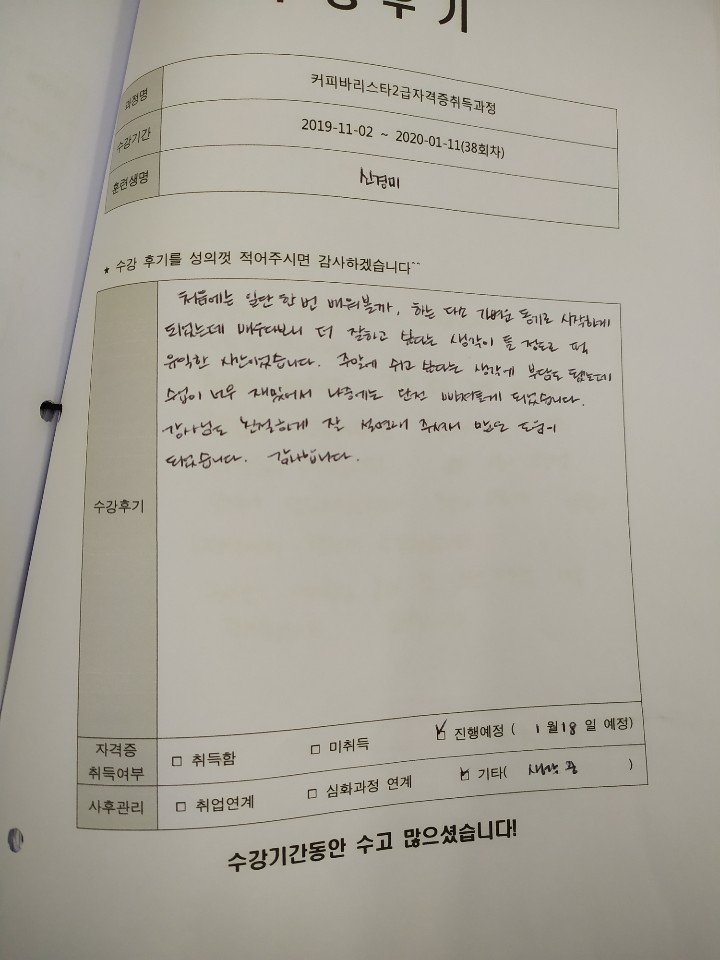 수강후기
과정명 커피바리스타2급자격증취득과정
수강기간 2019-11-02 ~ 2020-01-11(38회차)
훈련생명 신경미
★ 수강 후기를 성의껏 적어주시면 감사하겠습니다^^
처음에는 일단 한번 배워볼까, 하는 다소 가벼운 동기로 시작하게
되었는데 배우다보니 더 잘하고 싶다는 생각이 들 정도로 퍽
유익한 시간이었습니다. 주말에 쉬고 싶다는 생각에 부담도 됐는데
수업이 너무 재밌어서 나중에는 완전 빠져들게 되었습니다.
강사님도 친절하게 잘 설명해 주셔서 많은 도움이
되었습니다. 감사합니다.
수강후기
자격증 취득여부 □ 취득함 □ 미취득 ☑ 진행예정 ( 1 월 18 일 예정)
사후관리 □ 취업연계 □ 심화과정 연계 ☑ 기타( )
수강기간동안 수고 많으셨습니다!